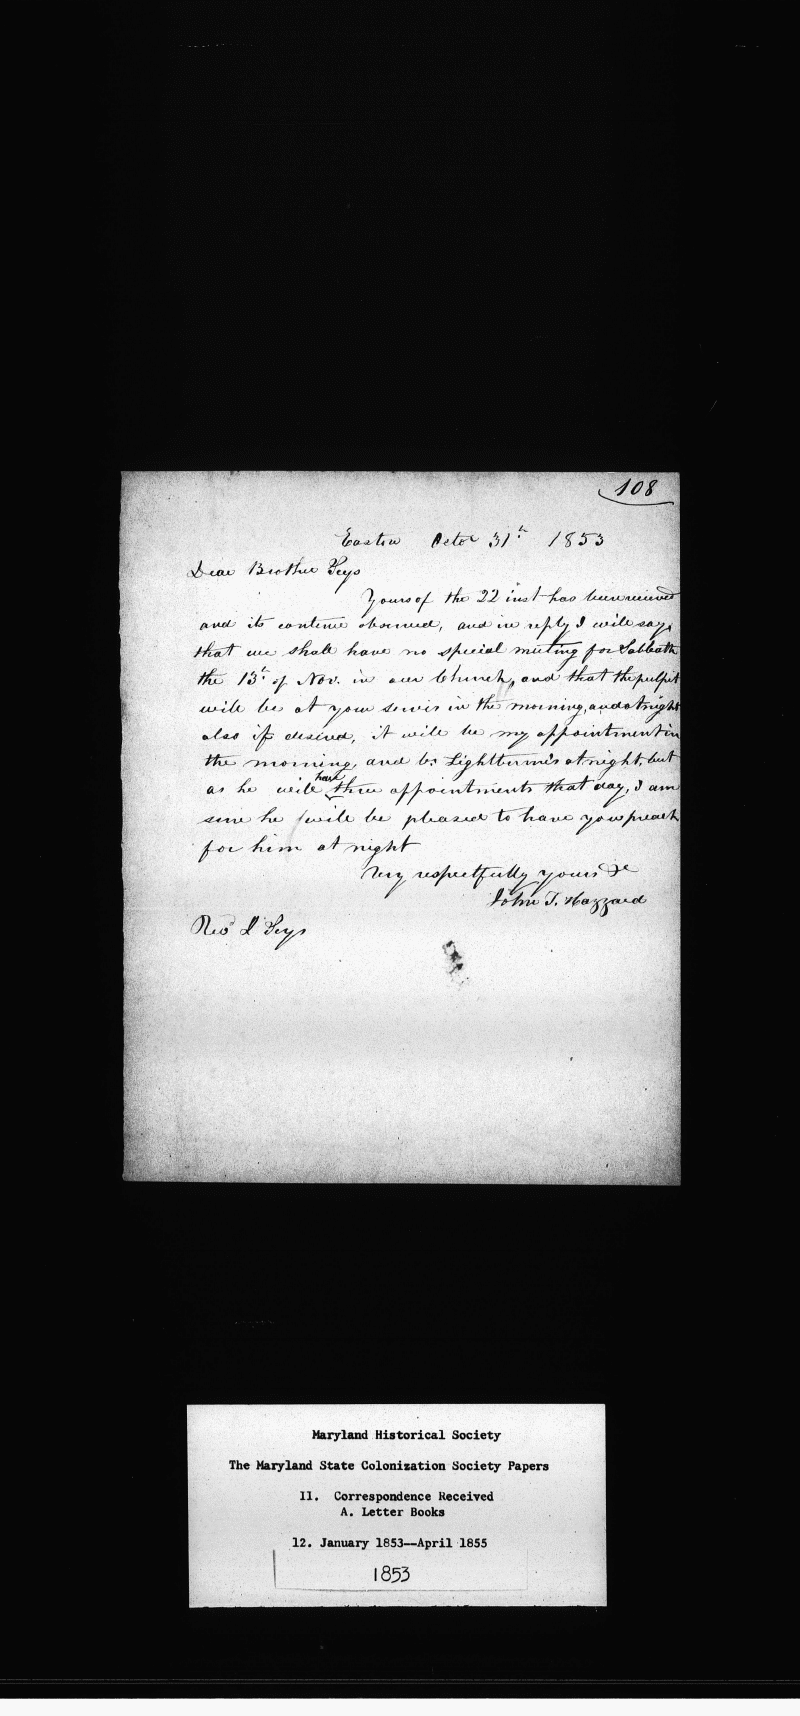 108
Easton Octor 31th 1853
Dear Brother Seys
Yours of the 22 inst has been received
and its contents observed, and in reply I will say,
that we shall have no special meeting for Sabbath
the 13th of Nov. in our Church, and that the pulpit
will be at your servis in the morning, and at night
also if desired, it will be my appointment in
the morning, and br. at night, but
as he will have three appointments that day, I am
sure he will be pleased to have you preach
for him at night
Very respectfully yours &c
John T. Hazzard
Rev Seys
Maryland Historical Society
The Maryland State Colonization Society Papers
11. Correspondence Received
A. Letter Books
12. January 1853--April 1855
1853